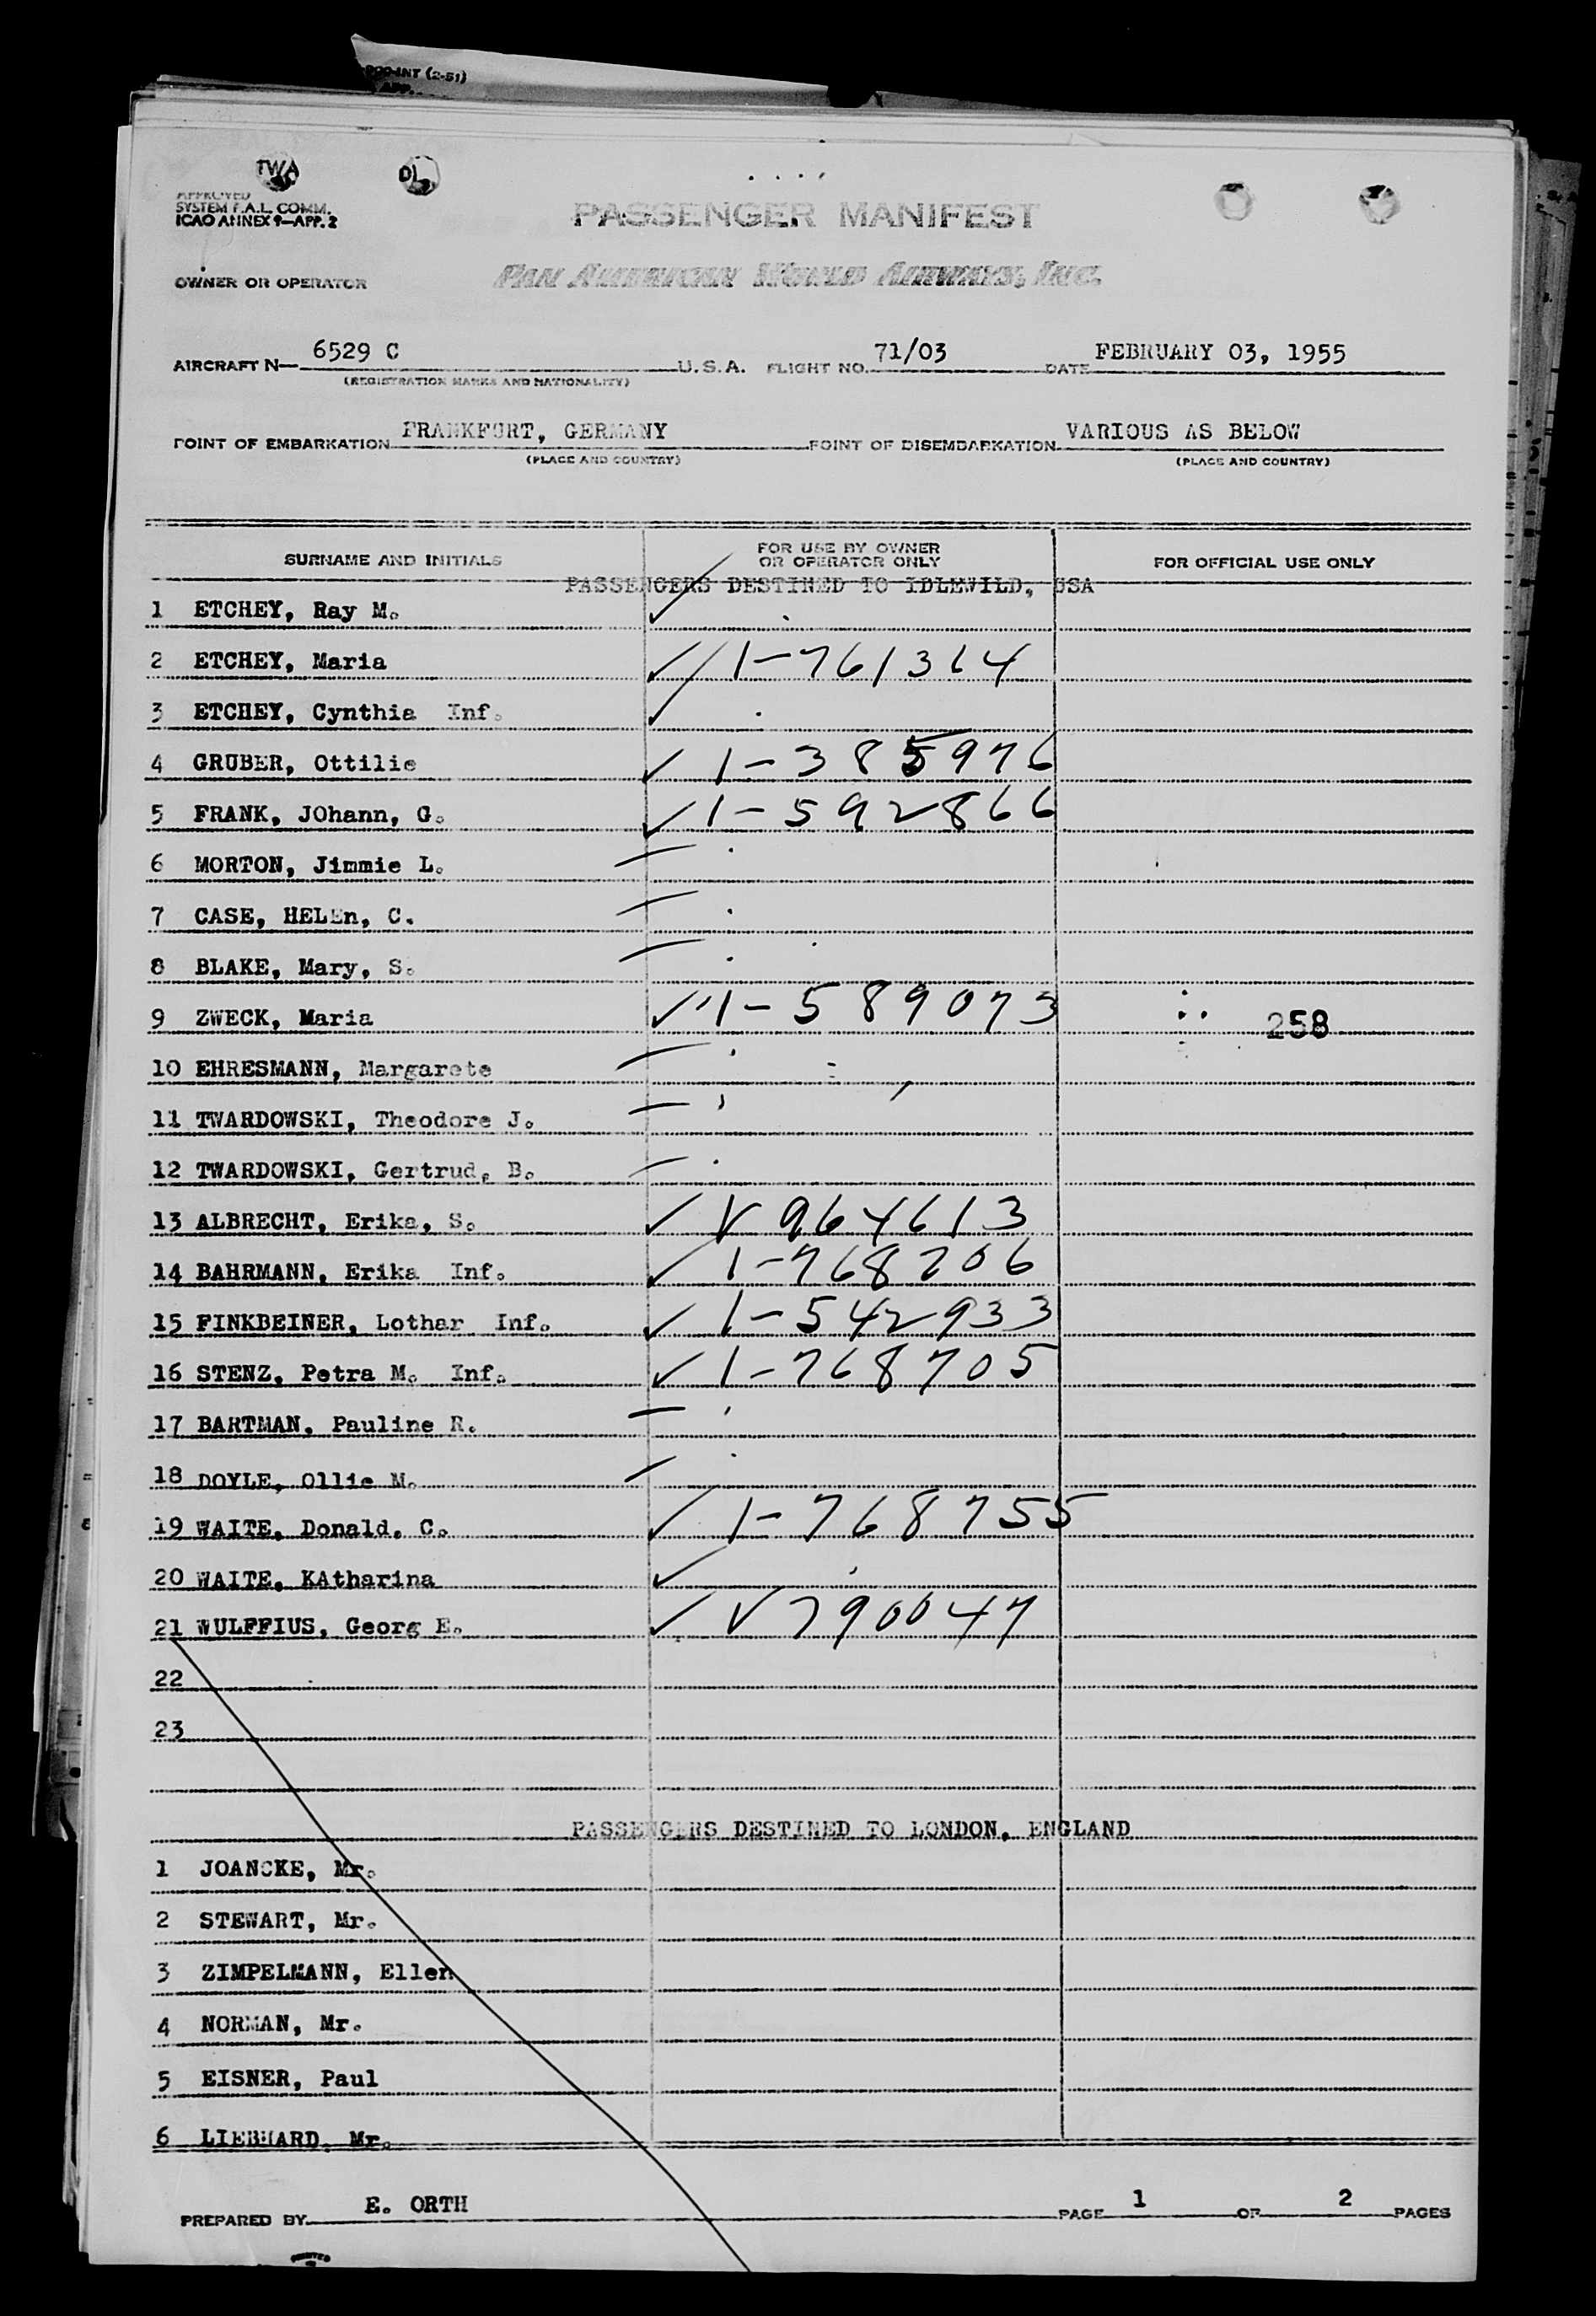 POO-INT (2-51)
APP.
TWA
DL
APPROVED
SYSTEM F.A.L. COMM.
ICAO ANNEX 9—APP. 2
PASSENGER MANIFEST
OWNER OR OPERATOR PAN AMERICAN WORLD AIRWAYS, INC.
AIRCRAFT N— 6529 C U.S.A. FLIGHT NO. 71/03 DATE FEBRUARY 03, 1955
(REGISTRATION MARKS AND NATIONALITY)
POINT OF EMBARKATION FRANKFURT, GERMANY POINT OF DISEMBARKATION VARIOUS AS BELOW
(PLACE AND COUNTRY) (PLACE AND COUNTRY)
SURNAME AND INITIALS FOR USE BY OWNER OR OPERATOR ONLY FOR OFFICIAL USE ONLY
PASSENGERS DESTINED TO IDLEWILD, USA
1 ETCHEY, Ray M. ✓
2 ETCHEY, Maria ✓ 1-761314
3 ETCHEY, Cynthia Inf. ✓
4 GRUBER, Ottilie ✓ 1-385976
5 FRANK, JOhann, G. ✓ 1-592866
6 MORTON, Jimmie L. —
7 CASE, HELEn, C. —
8 BLAKE, Mary, S. —
9 ZWECK, Maria ✓ 1-589073 258
10 EHRESMANN, Margarete —
11 TWARDOWSKI, Theodore J. —
12 TWARDOWSKI, Gertrud, B. —
13 ALBRECHT, Erika, S. ✓ V 964613
14 BAHRMANN, Erika Inf. ✓ 1-768706
15 FINKBEINER, Lothar Inf. ✓ 1-542933
16 STENZ, Petra M. Inf. ✓ 1-768705
17 BARTMAN, Pauline R. —
18 DOYLE, Ollie M. —
19 WAITE, Donald, C. ✓ 1-768755
20 WAITE, KAtharina ✓
21 WULFFIUS, Georg E. ✓ V 790047
22
23
PASSENGERS DESTINED TO LONDON, ENGLAND
1 JOANCKE, Mr.
2 STEWART, Mr.
3 ZIMPELMANN, Ellen
4 NORMAN, Mr.
5 EISNER, Paul
6 LIEBHARD, Mr.
PREPARED BY E. ORTH PAGE 1 OF 2 PAGES